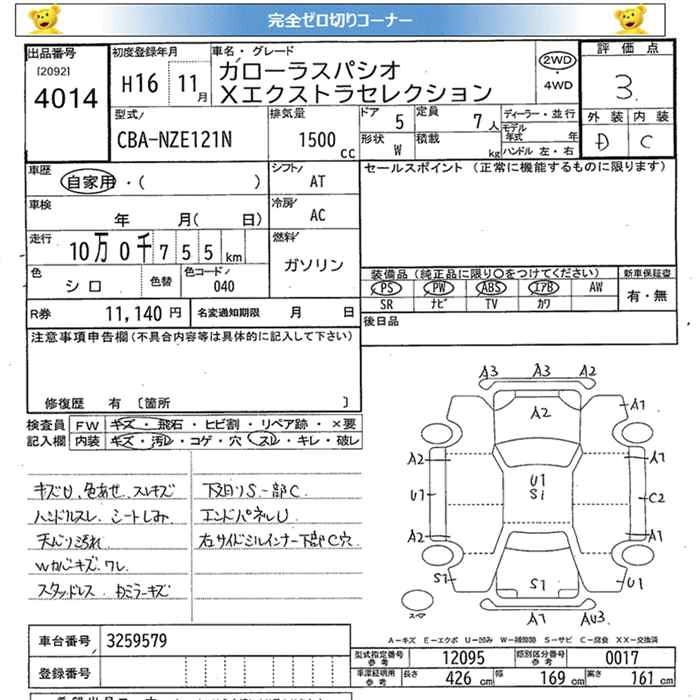 完全ゼロ切りコーナー
出品番号 初度登録年月 車名・グレード 評価点
[2092] 4014 H16 11月 カローラスパシオ 2WD・4WD 3
Xエクストラセレクション
型式 排気量 ドア 5 定員 7人 ディーラー・並行 外装 内装
CBA-NZE121N 1500cc 形状 W 積載 kg モデル年式 年 D C
ハンドル 左・右
車歴 シフト AT セールスポイント (正常に機能するものに限ります)
自家用・( )
車検 年 月( 日) 冷房 AC
走行 10万0千755km 燃料 ガソリン
色 シロ 色替 色コード 040 装備品(純正品に限り〇をつけてください) 新車保証書
PS PW ABS エアB AW 有・無
SR ナビ TV カワ
R券 11,140円 名変通知期限 月 日 後日品
注意事項申告欄(不具合内容等は具体的に記入して下さい)
修復歴 有 〔箇所 〕
検査員 FW キズ・飛石・ヒビ割・リペア跡・×要
記入欄 内装 キズ・汚レ・コゲ・穴・スレ・キレ・破レ
キズU、色あせ、スレキズ 下廻りS-部C.
ハンドルスレ、シートしみ エンドパネルU
天バリ汚れ 右サイドシルインナー下部C穴
Wカバーキズ.ワレ
スタッドレス
A3 A3 A2
A2 A1
A2 A1
U1 U1 Si C2
A2 A1
S1 S1 U1
スペア A1 AU3.
A-キズ E-エクボ U-凹み W-補修跡 S-サビ C-腐食 XX-交換済
車台番号 3259579
型式指定番号 参考 12095 類別区分番号 参考 0017
登録番号 車庫証明用 参考 長さ 426cm 幅 169cm 高さ 161cm